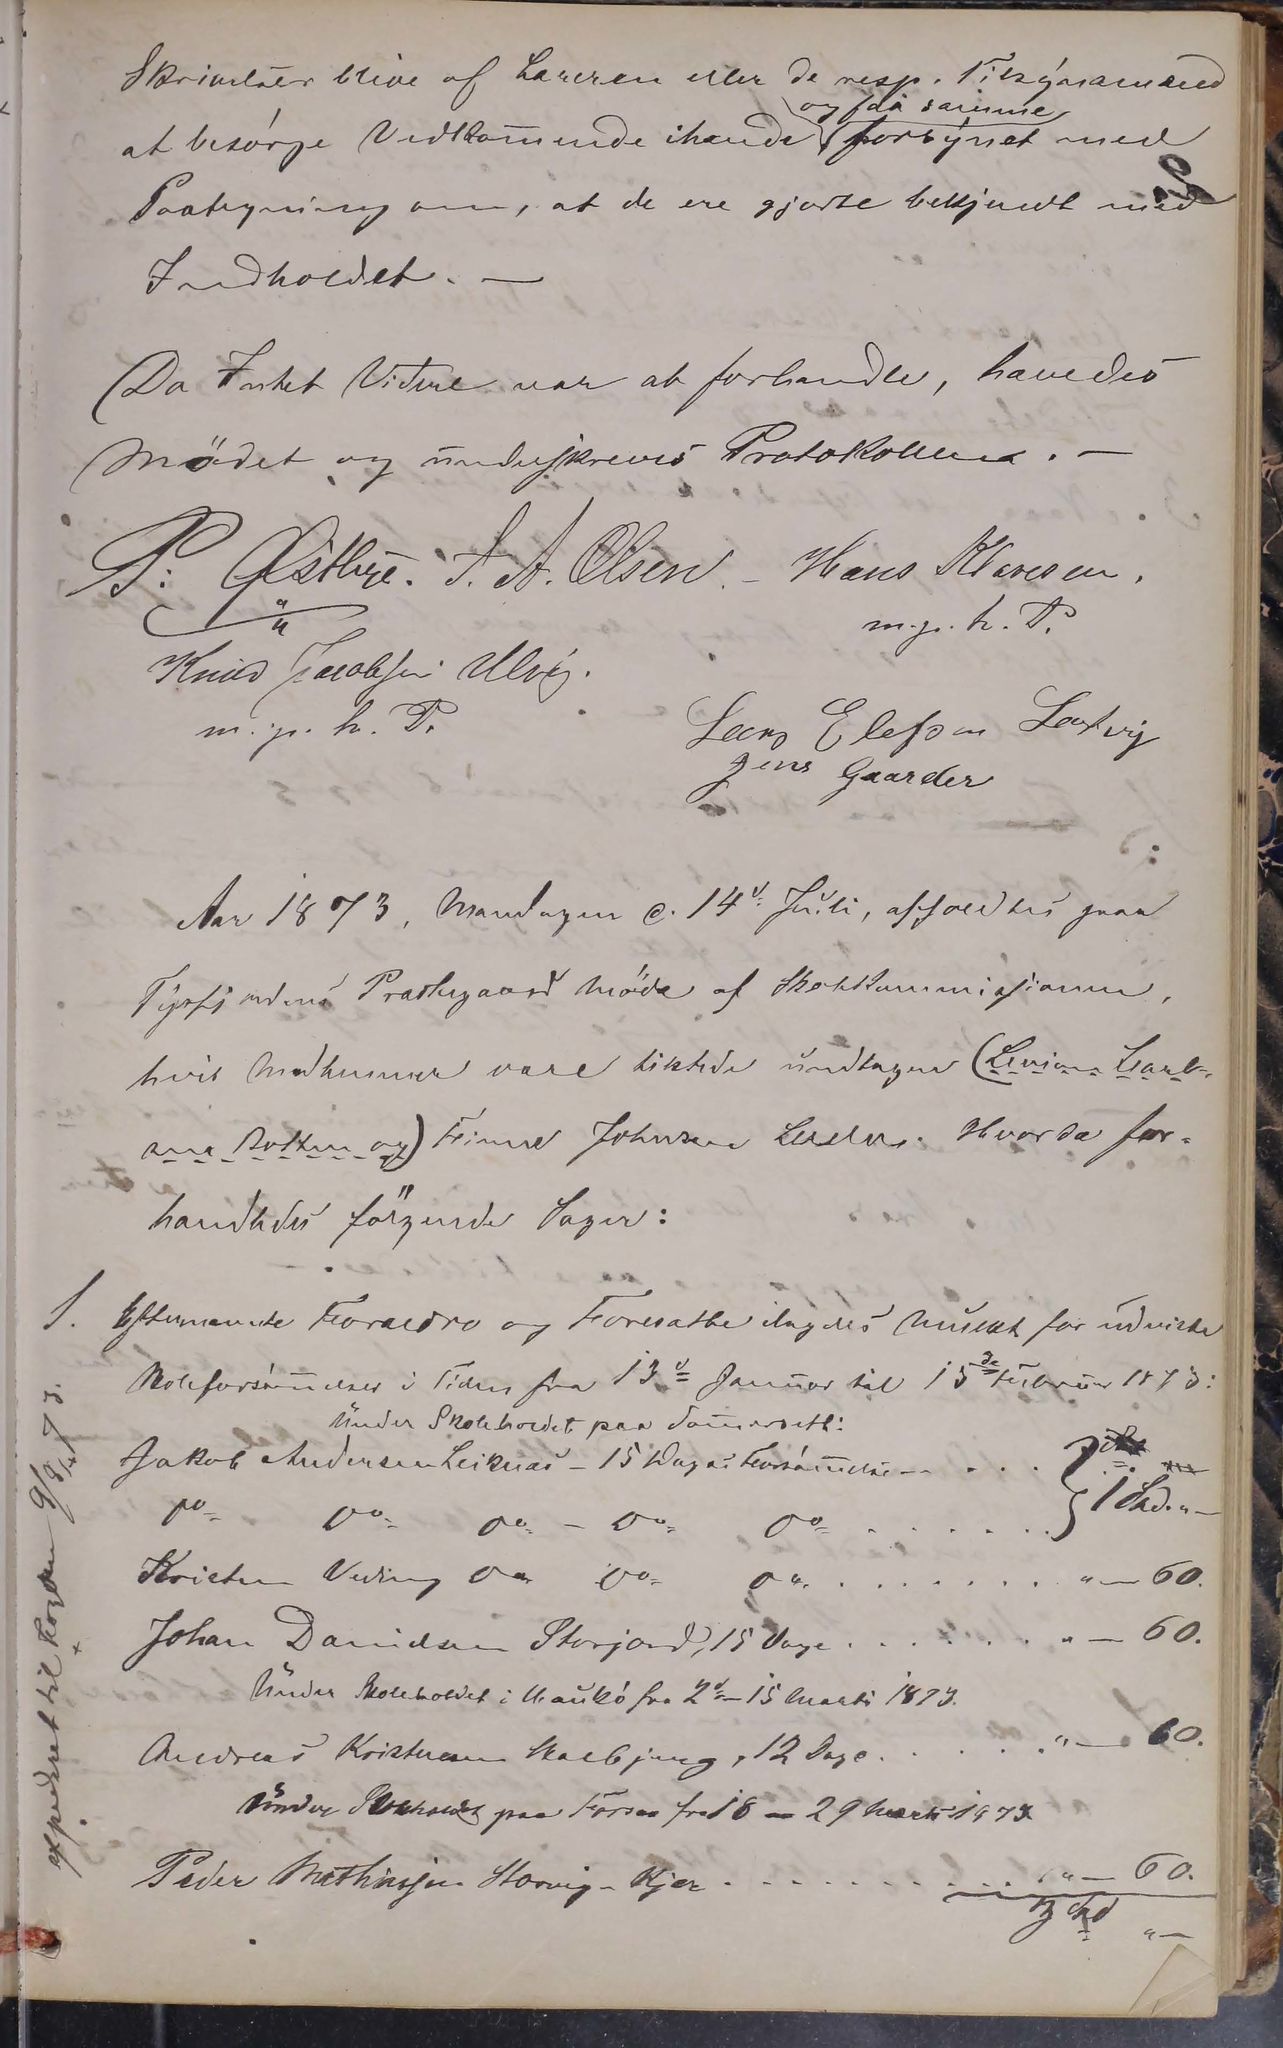 Skrivelser blive af Læreren eller de resp. Tilsynsmænd
og faa samme
at besørge Vedkommende ihænde forsynet med
Paategning om, at de ere gjorte bekjendt med
Indholdet. —
Da Intet Videre var at forhandle, hævedes
Mødet og underskreves Protokollen. —
P. Østbye. S. A. Olsen. - Hans Klavesen.
m. p. h. P.
Knud Jacobsen Ulvig.
m. p. h. P.
Lars Elefsen
Jens Gaarder
Aar 1873, Mandagen d. 14d Juli, afholdtes paa
Tysfjordens Præstegaard Møde af Skolekommissionen,
hvis Medlemmer vare tilstede undtagen (
og) Johnsen Hvorda for-
handledes følgende Sager:
1. Efternævnte Forældre og Foresatte ilagdes Mulkt for udviste
Skoleforsømmelser i Tiden fra 13d Januar til 15de Februar 1873:
Under Skoleholdet paa
Jakob Andersen Leiknæs - 15 Dages Forsømmelse . . .
Do Do Do - Do Do . . . . . . 1 Spd. " —
Kristen Do Do Do . . . . . . . . " — 60.
Johan Danielsen Storjord, 15 Dage . . . . . . . " — 60.
Under Skoleholdet i fra 2d - 15 Marts 1873.
Andreas Kristensen 12 Dage . . . . . . " — 60.
Under Skoleholdet paa fra 18 - 29 Marts 1873
Peder Mathissen Storvig - Kjær . . . . . . . . . . " — 60.
Spd " —
expederet til Fogden 9/8 73.